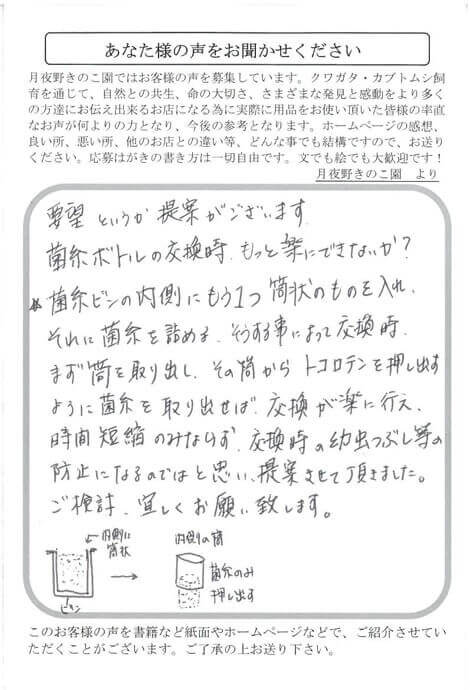 あなた様の声をお聞かせください
月夜野きのこ園ではお客様の声を募集しています。クワガタ・カブトムシ飼
育を通じて、自然との共生、命の大切さ、さまざまな発見と感動をより多く
の方達にお伝え出来るお店になる為に実際に用品をお使い頂いた皆様の率直
なお声が何よりの力となり、今後の参考となります。ホームページの感想、
良い所、悪い所、他のお店との違い等、どんな事でも結構ですので、お送り
ください。応募はがきの書き方は一切自由です。文でも絵でも大歓迎です！
月夜野きのこ園　より
要望というか提案がございます。
菌糸ボトルの交換時、もっと楽にできないか？
菌糸ビンの内側にもう1つ筒状のものを入れ、
それに菌糸を詰める。そうする事によって交換時、
まず筒を取り出し、その筒からトコロテンを押し出す
ように菌糸を取り出せば、交換が楽に行え、
時間短縮のみならず、交換時の幼虫つぶし等の
防止になるのではと思い、提案させて頂きました。
ご検討、宜しくお願い致します。
内側に
筒状
ビン
内側の筒
菌糸のみ
押し出す
このお客様の声を書籍など紙面やホームページなどで、ご紹介させてい
ただくことがございます。ご了承の上お送り下さい。